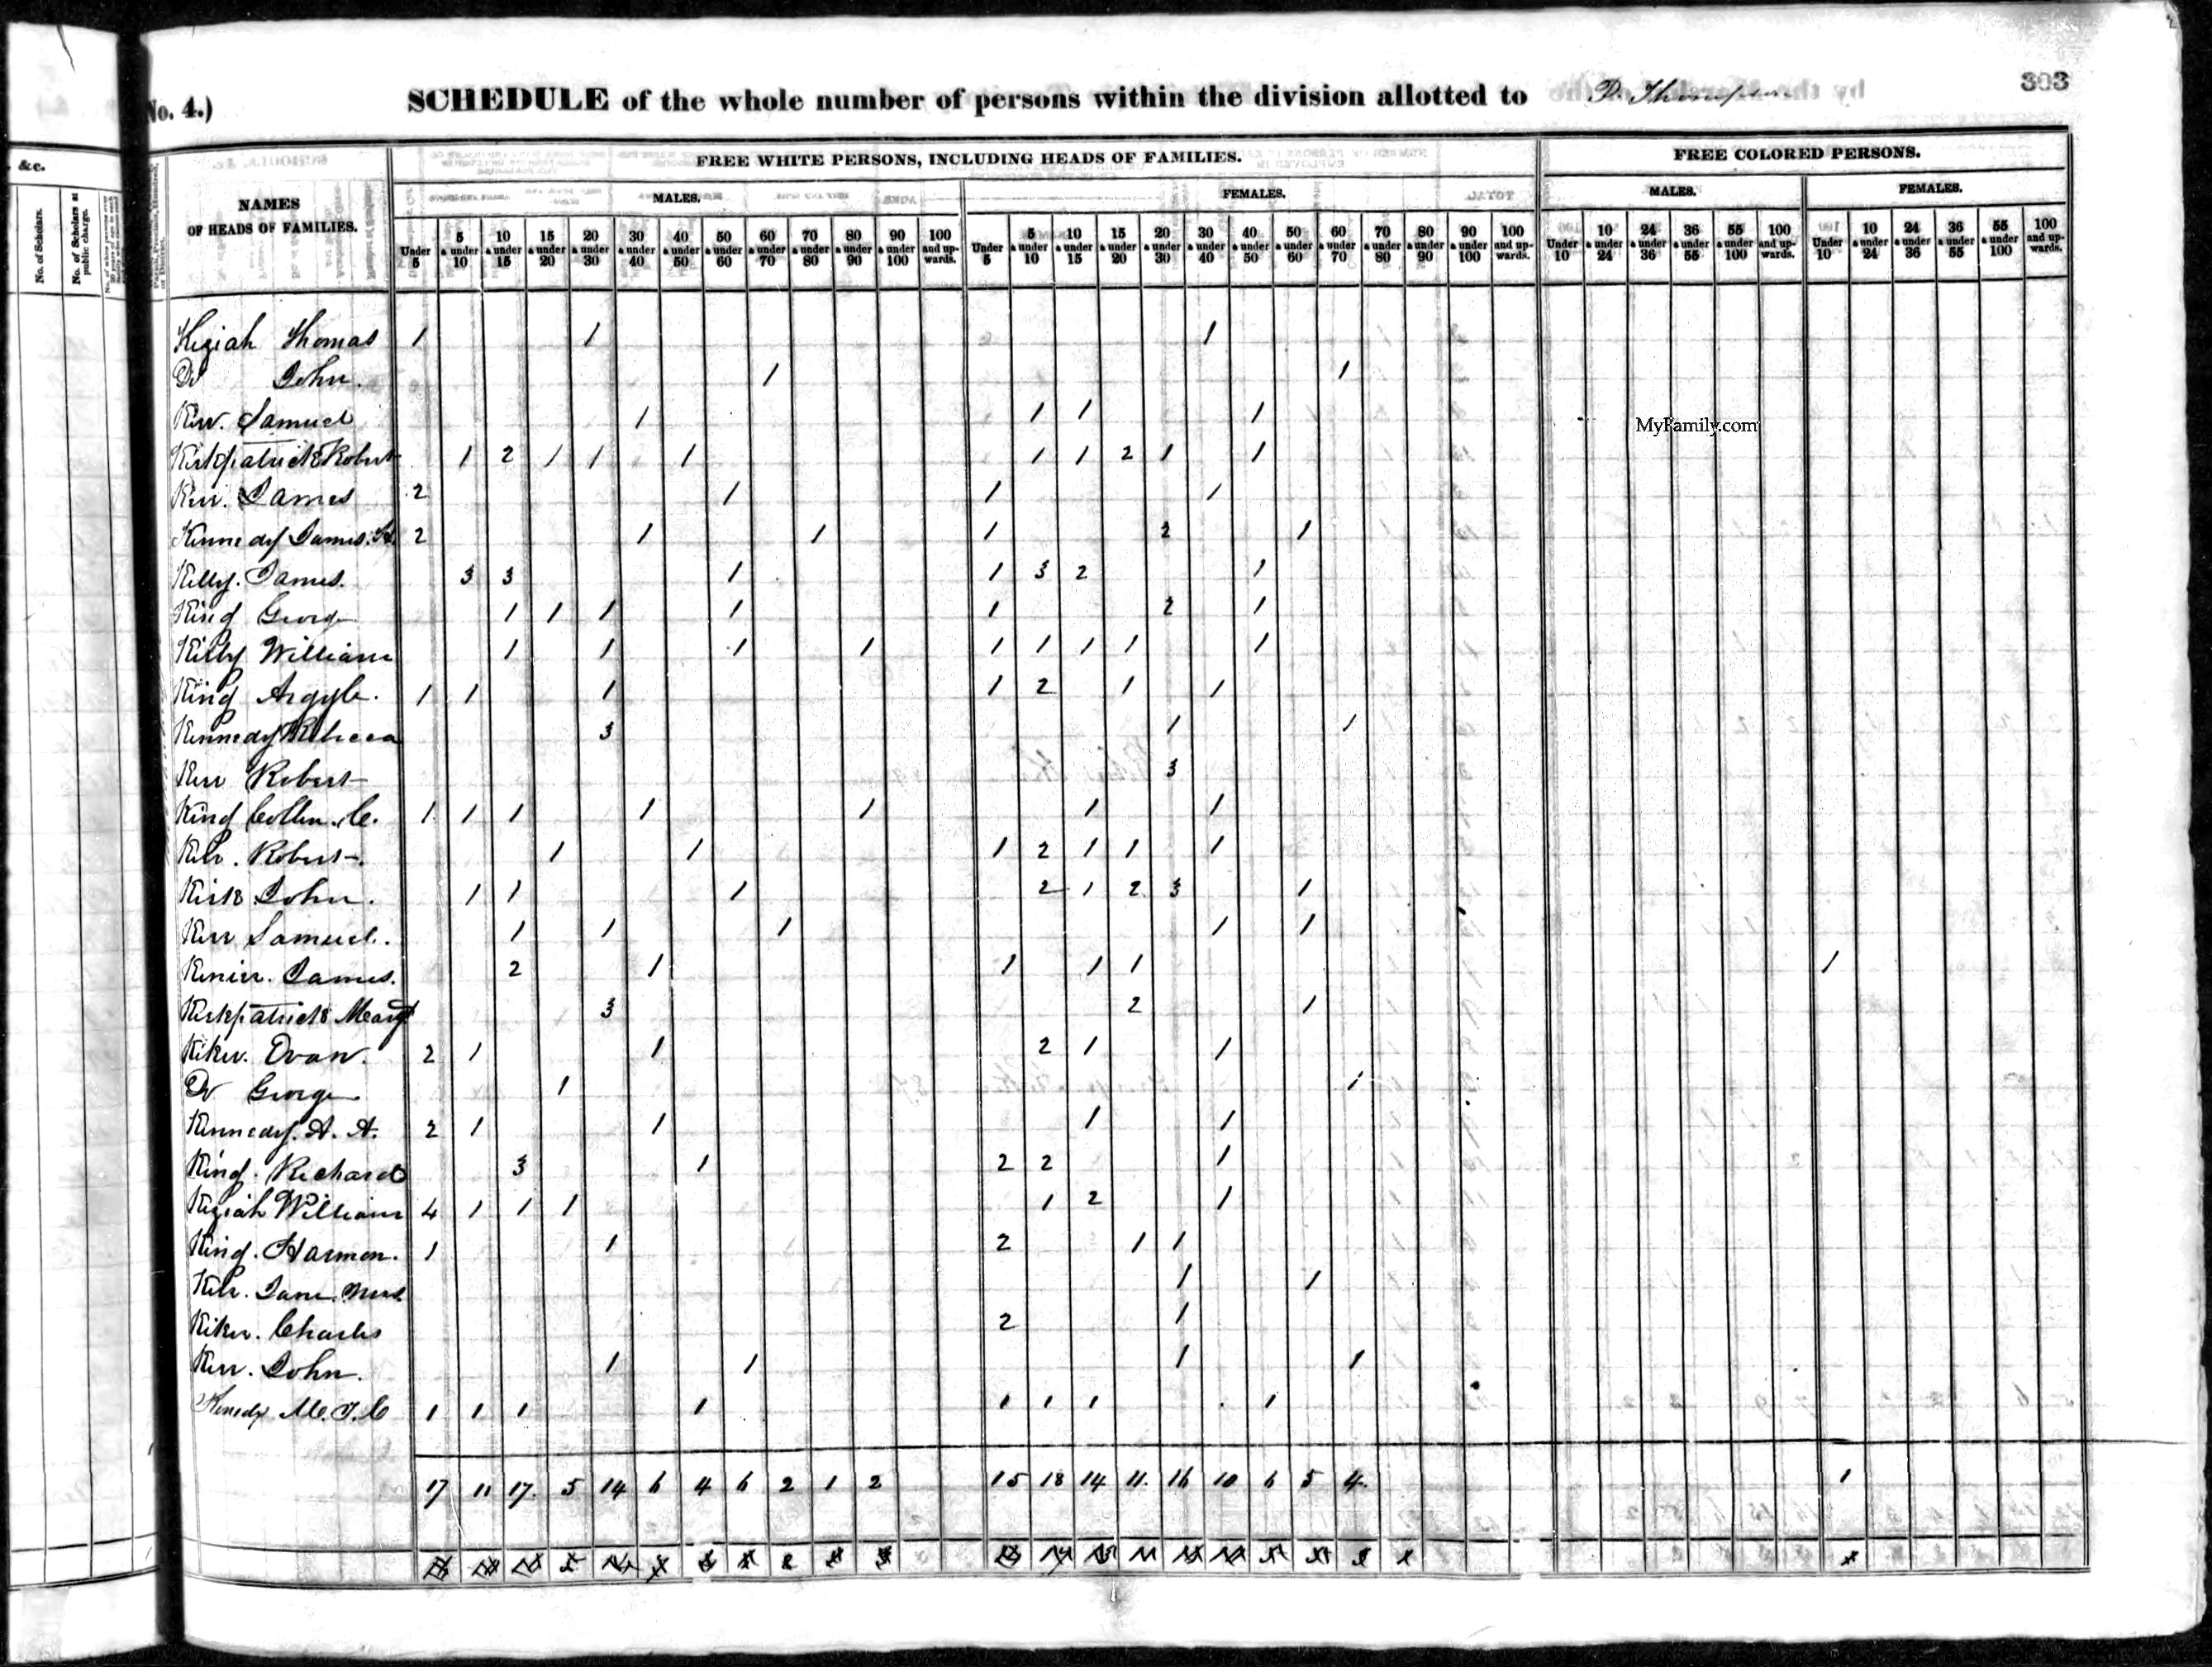 No. 4.)
SCHEDULE of the whole number of persons within the division allotted to P. Thompson
303
&c.
No. of Scholars.
No. of Scholars at public charge.
NAMES
OF HEADS OF FAMILIES.
FREE WHITE PERSONS, INCLUDING HEADS OF FAMILIES.
FREE COLORED PERSONS.
MALES. FEMALES. MALES. FEMALES.
Under 5 | 5 & under 10 | 10 & under 15 | 15 & under 20 | 20 & under 30 | 30 & under 40 | 40 & under 50 | 50 & under 60 | 60 & under 70 | 70 & under 80 | 80 & under 90 | 90 & under 100 | 100 and upwards.
Under 5 | 5 & under 10 | 10 & under 15 | 15 & under 20 | 20 & under 30 | 30 & under 40 | 40 & under 50 | 50 & under 60 | 60 & under 70 | 70 & under 80 | 80 & under 90 | 90 & under 100 | 100 and upwards.
Under 10 | 10 & under 24 | 24 & under 36 | 36 & under 55 | 55 & under 100 | 100 and upwards.
Under 10 | 10 & under 24 | 24 & under 36 | 36 & under 55 | 55 & under 100 | 100 and upwards.
Kiziah Thomas 1 1 1
Do John. 1 1
Kerr. Samuel 1 1 1 1
MyFamily.com
Kirkpatrick Robert 1 2 1 1 1 1 1 2 1 1
Kerr. James 2 1 1 1
Kennedy James. 2 1 1 1 2 1
Kelly. James. 3 3 1 1 3 2 1
King George 1 1 1 1 1 2 1
Kelly William 1 1 1 1 1 1 1 1 1
King Argyle. 1 1 1 1 2 1 1
Kennedy Rebecca 3 1 1
Kerr Robert 3
King Collin. C. 1 1 1 1 1 1 1
Robert. 1 1 1 2 1 1 1
Kirk John. 1 1 1 2 1 2 3 1
Kerr Samuel. 1 1 1 1 1
James. 2 1 1 1 1 1
Kirkpatrick Margt 3 2 1
Kiker. Evan. 2 1 1 2 1 1
Do George 1 1
Kennedy. A. A. 2 1 1 1 1
King. Richard 3 1 2 2 1
Kiziah William 4 1 1 1 1 2 1
King. Harmon. 1 1 2 1 1
Jane. Mrs. 1 1
Kiker. Charles 2 1
Kerr. John. 1 1 1 1
Kenedy M. J. C 1 1 1 1 1 1 1 1
17 11 17. 5 14 6 4 6 2 1 2 15 18 14 11. 16 10 6 5 4. 1